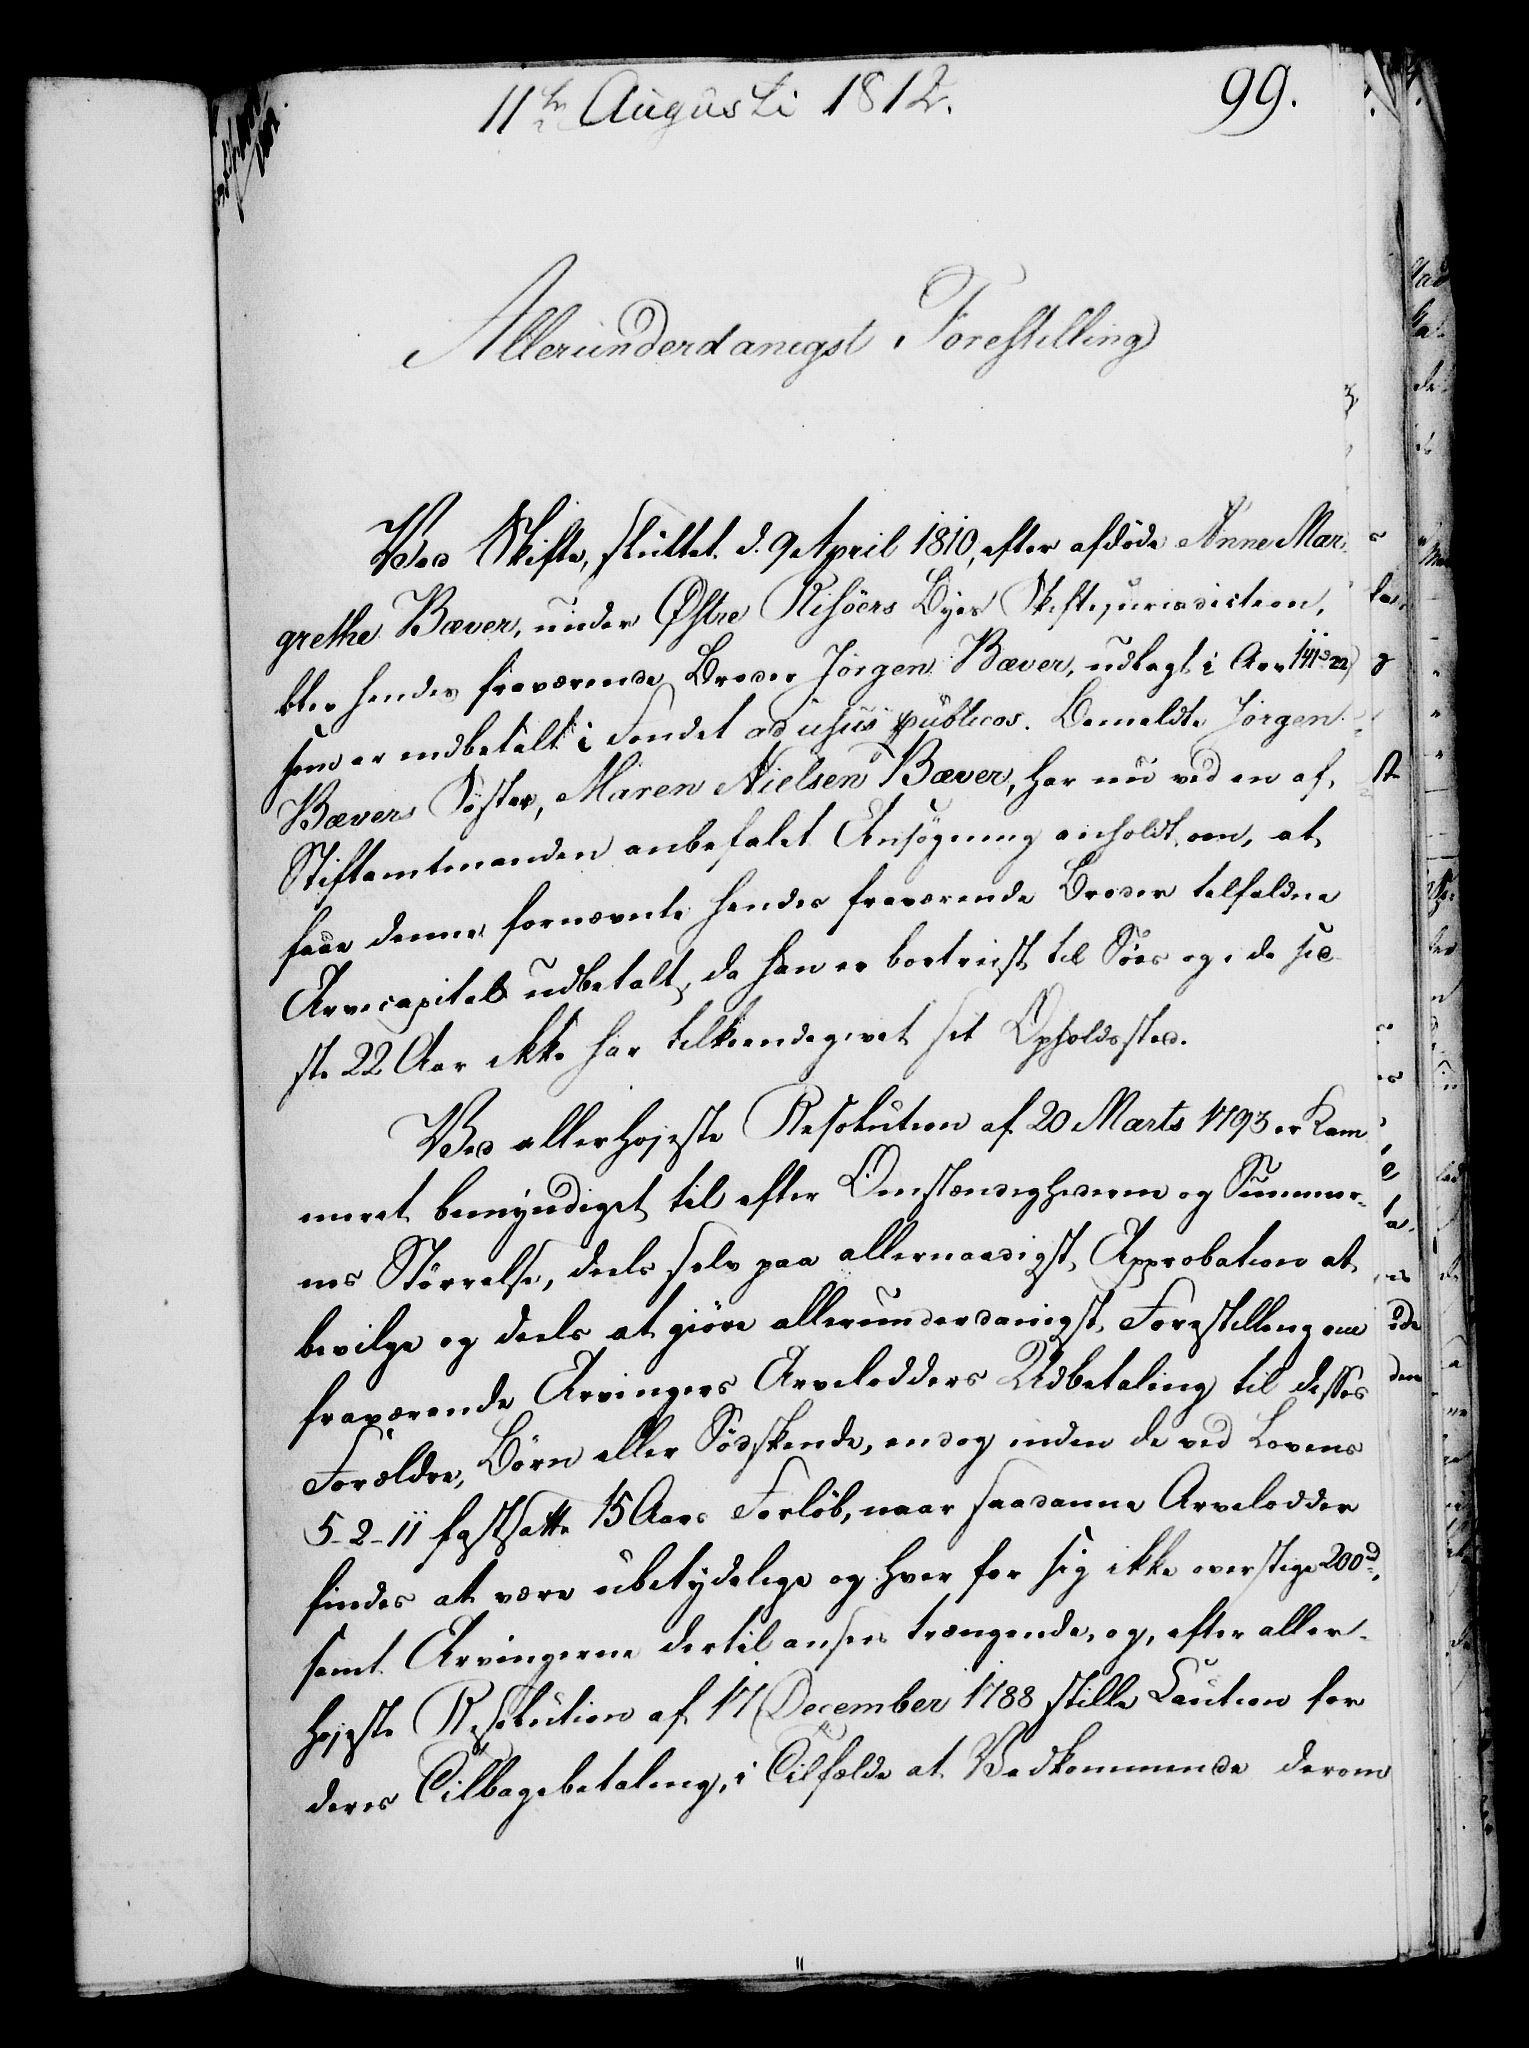 11te Augusti 1812.
99.
Allerunderdanigst Forestilling
Ved Skifte, sluttet d. 9 April 1810, efter afdøde Anne Mar-
grethe Bæver, under Østre Risöers Byes Skiftejurisdiction,
blev hendes fraværende Broder Jörgen Bæver, udlagt i Arv 141d 22
som er indbetalt i Fondet ad usus publicos. Bemeldte Jörgen
Bævers Söster, Maren Nielsen Bæver, har nu ved en af
Stiftamtmanden anbefalet Ansögning anholdt om, at
faae denne, fornævnte hendes fraværende Broder tilfaldne
Arvecapital udbetalt, da han er bortreist til Söes og i de sid-
ste 22 Aar ikke har tilkiendegivet sit Opholdssted.
Ved allerhöjeste Resolution af 20 Marts 1793 er Kam-
meret bemyndiget til efter Omstændighederne og Summer-
nes Störrelse, deels selv paa allernaadigst Approbation at
bevilge og deels at giöre allerunderdanigst Forestilling om
fraværende Arvingers Arvelodders Udbetaling til disses
Forældre, Börn eller Södskende, endog inden de ved Lovens
5-2-11 fastsatte 15 Aars Forlöb, naar saadanne Arvelodder
findes at være ubetydelige og hver for sig ikke overstige 200d,
samt Arvingerne dertil ansees trængende, og, efter aller-
höjeste Resolution af 17 December 1788 stille Caution for
deres Tilbagebetaling, i Tilfælde at Vedkommende derom